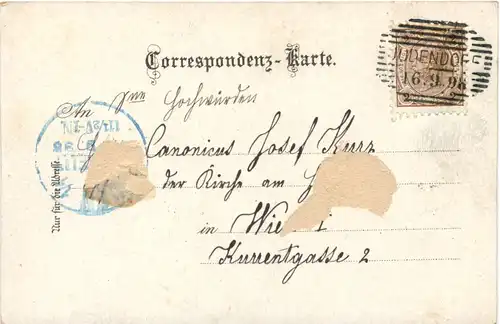 Correspondenz-Karte.
JUDENDORF
16.9.98
An
Hochwürden
Canonicus Josef Kurz
der Kirche am
in Wie
Kurrentgasse 2
Nur für die Adresse.